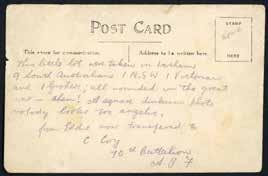 POST CARD
STAMP
HERE
This space for correspondence.
Address to be written here.
This little lot was taken in
of Australians 1 N.S.W 1 Victorian
and 1 ; all wounded in the great
war - ahem! A square photo
nobody looks too angelic.
from Eddie now transferred to
C Coy
Battalion
A I F